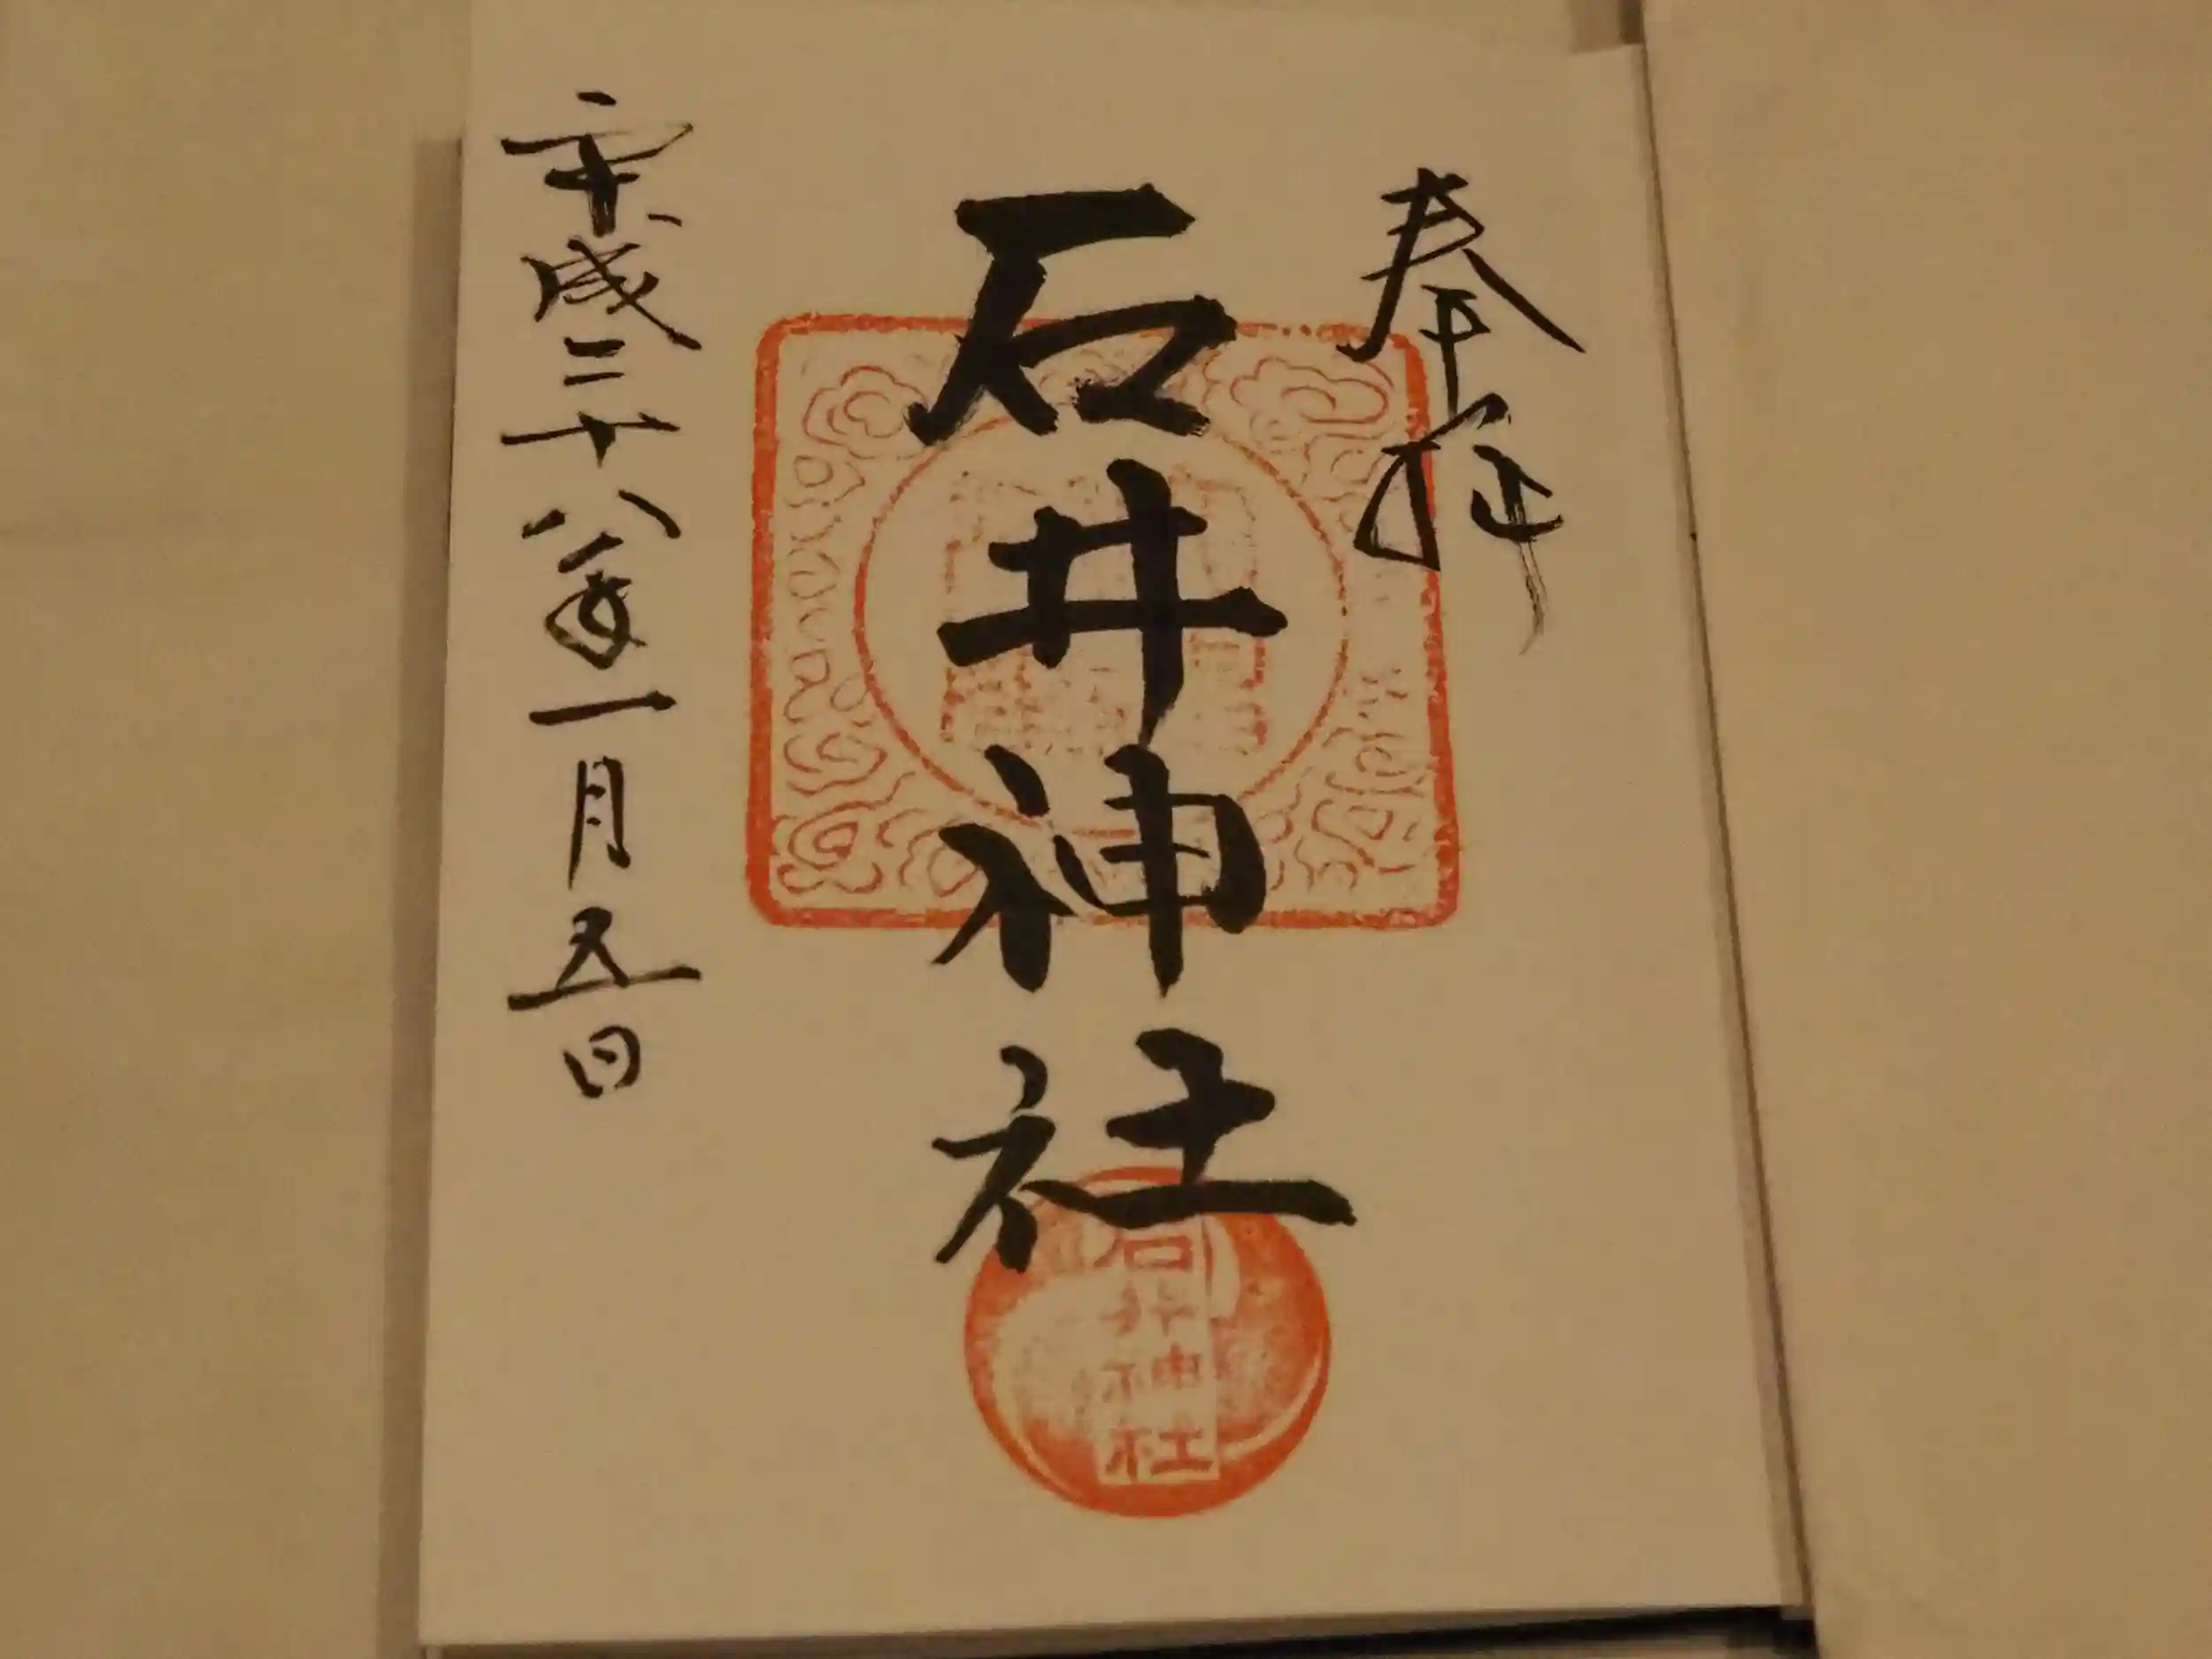 奉拝
石井神社
石井神社
平成二十八年一月五日